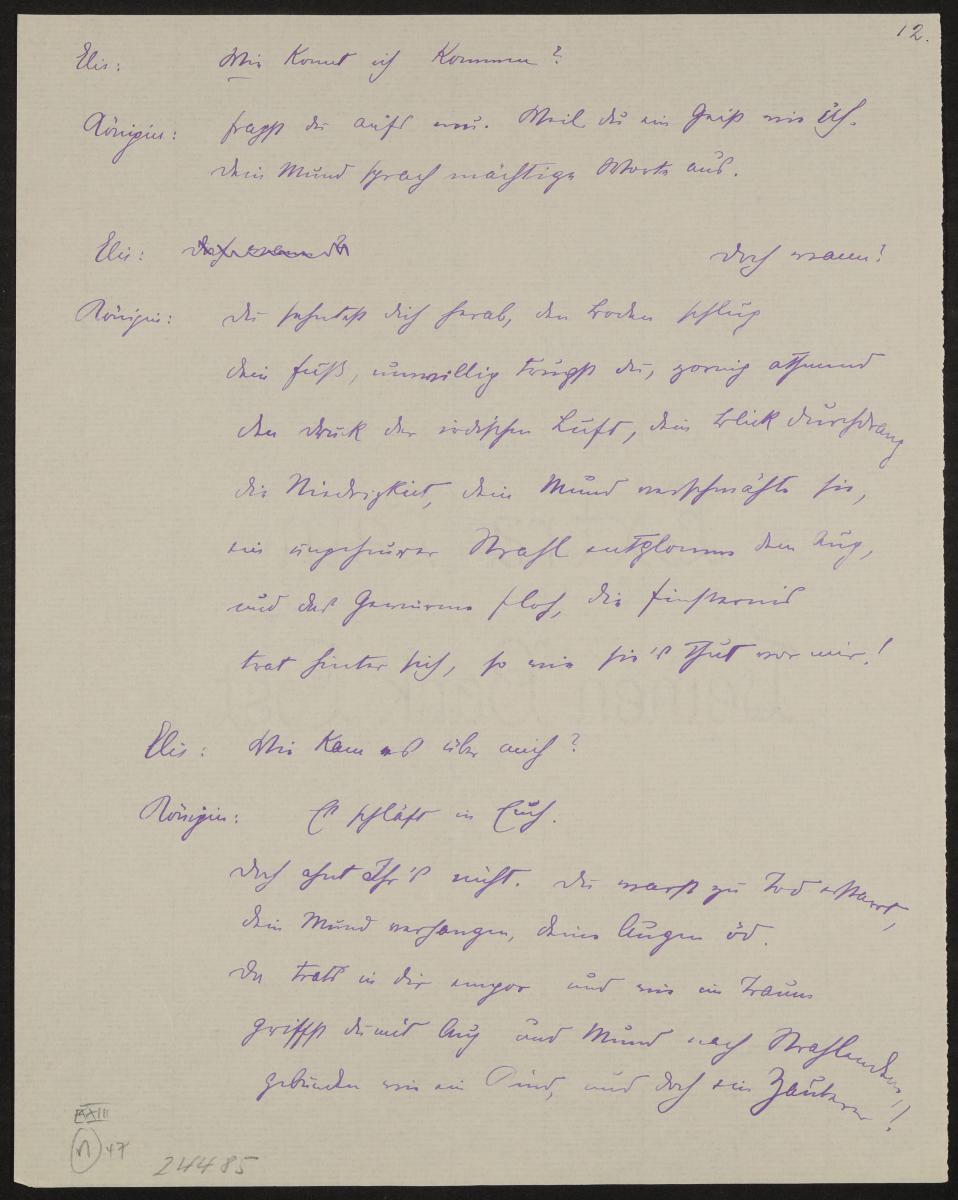 12.
Elis: Wie konnt ich kommen?
Königin: fragst du aufs neu. Weil du ein Geist wie ich.
dein Mund sprach mächtige Worte aus.
Elis: doch wann?
Königin: du sehntest dich herab, den Boden schlug
dein Fuß, unwillig trugst du, zornig athmend
den Druck der irdischen Luft, dein Blick durchdrang
die Niedrigkeit, dein Mund verschmähte sie,
ein ungeheurer Strahl entglomm dem Aug,
und das Gewürme floh, die Finsternis
trat hinter sich, so wie sie's thut vor mir!
Elis: Wie kam es über mich?
Königin: Es schläft in Euch.
doch ahnt Ihr's nicht. du warst zu Tod erstarrt,
dein Mund verhangen, deine Augen öd.
da trats in dir empor und wie ein Traum
griffst du mit Aug und Mund nach Strahlendem,
gebunden wie ein Kind, und doch ein Zauberer!
XXIII
47
24485